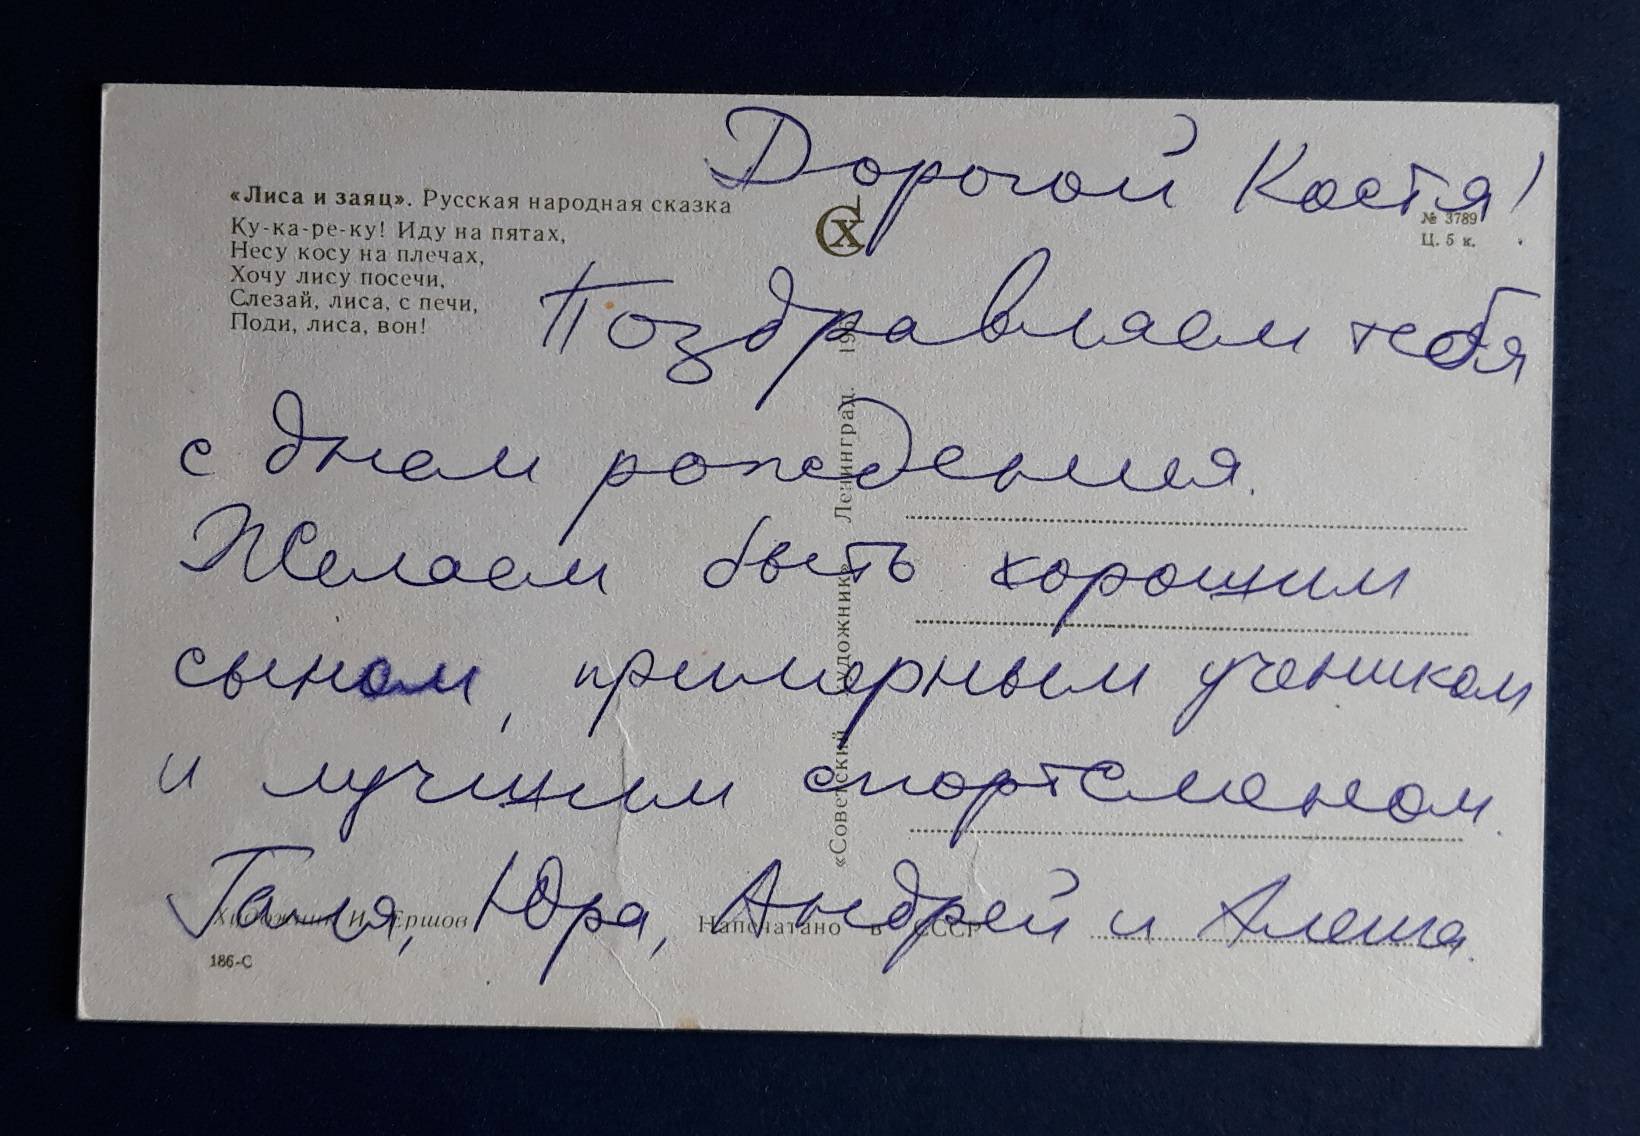 Дорогой Костя!
«Лиса и заяц». Русская народная сказка
Ку-ка-ре-ку! Иду на пятах,
Несу косу на плечах,
Хочу лису посечи,
Слезай, лиса, с печи,
Поди, лиса, вон!
СХ
№ 3789
Ц. 5 к.
Поздравляем тебя
с днем рождения.
Желаем быть хорошим
сыном, примерным учеником
и лучшим спортсменом.
Галя, Юра, Андрей и Алеша.
«Советский художник» Ленинград.
Художник И. Ершов
Напечатано в СССР
186-С